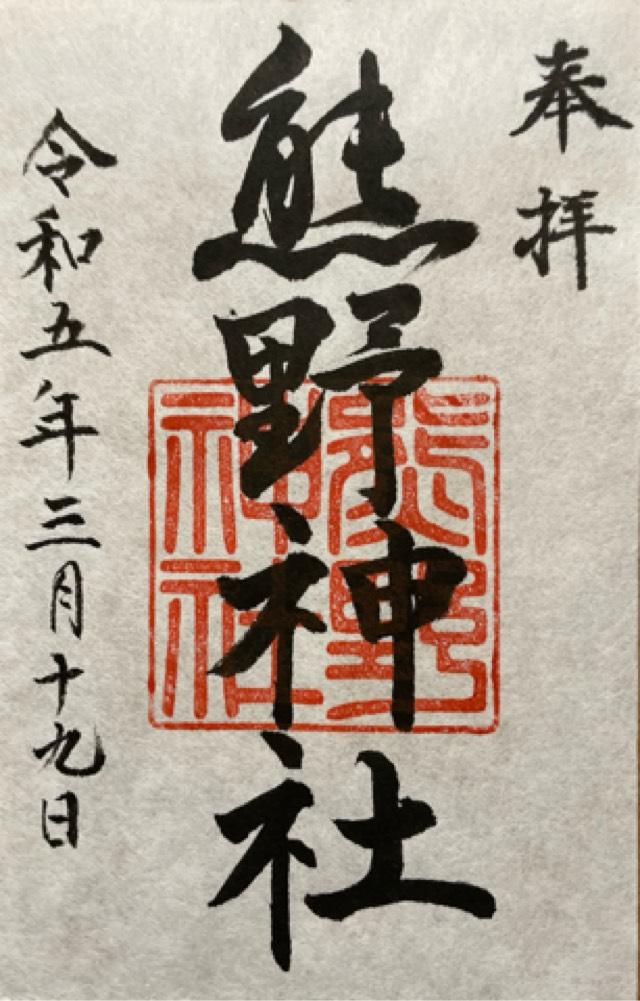 奉拝
熊野神社
熊野
神社
令和五年三月十九日